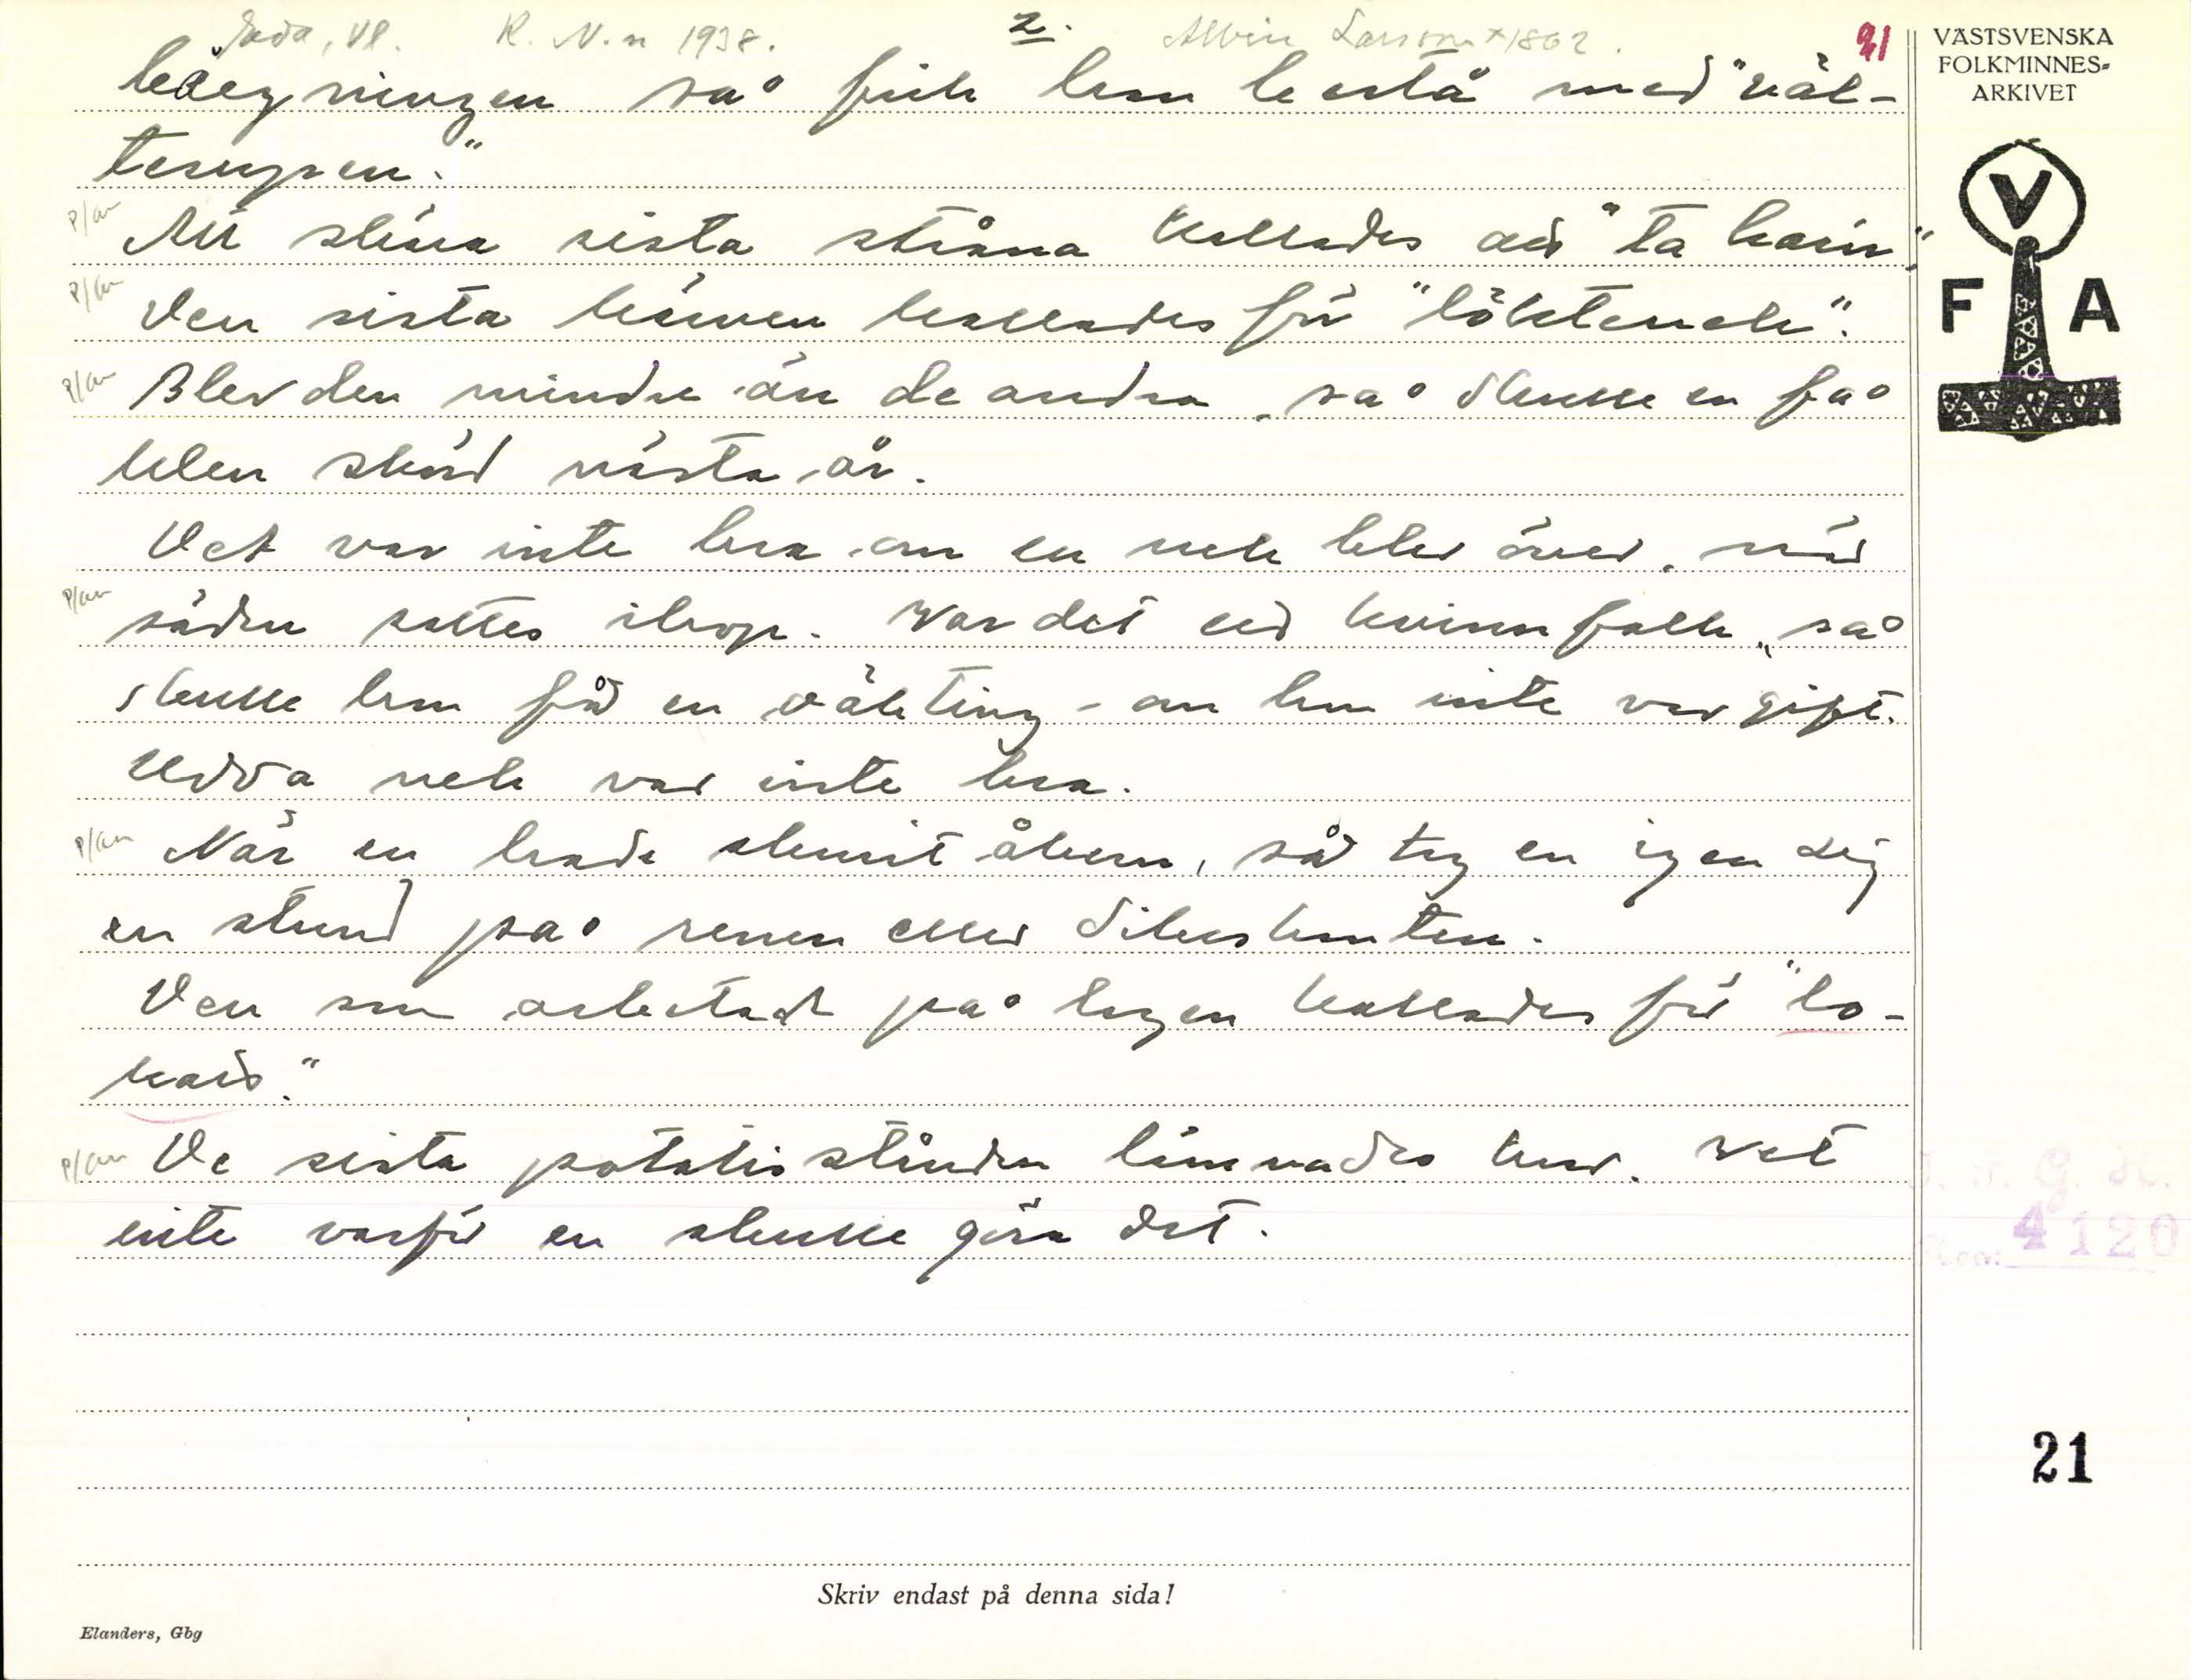 Eda, Vl. R. N-n 1938. 2. Albin Larsson *1862. 21
bärgningen så fick han bestå med "väl-
tesupen."
Att skära sista stråna kallades att "ta harin".
Den sista kärven kallades för "löktenek".
Blev den mindre än de andra, så skulle en få
klen skörd nästa år.
Det var inte bra om en nek blev över, när
säden sattes ihop. Var det ett kvinnfolk, så
skulle hon få en oäkting - om hon inte var gift.
Udda nek var inte bra.
När en hade skurit åkern, så tog en igen sej
en stund på renen eller dikeskanten.
Den som arbetade på logen kallades för "lo-
kars".
De sista potatisstånden lämnades kvar. Vet
inte varför en skulle göra det.
VÄSTSVENSKA
FOLKMINNES-
ARKIVET
V
F A
4120
21
Skriv endast på denna sida!
Elanders, Gbg